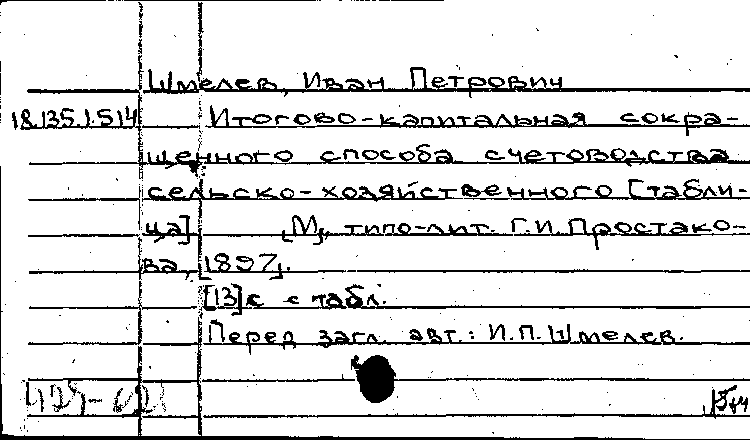 Шмелев, Иван Петрович
18.135.1.514 Итогово-капитальная сокра-
щенного способа счетоводства
сельско-хозяйственного [табли-
ца] [М], типо-лит. Г.И. Простако-
ва, [1897].
[13]с с табл.
Перед загл. авт.: И.П.Шмелев.